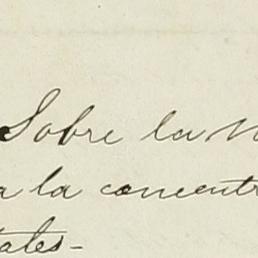 Sobre la
a la concentr
tales-